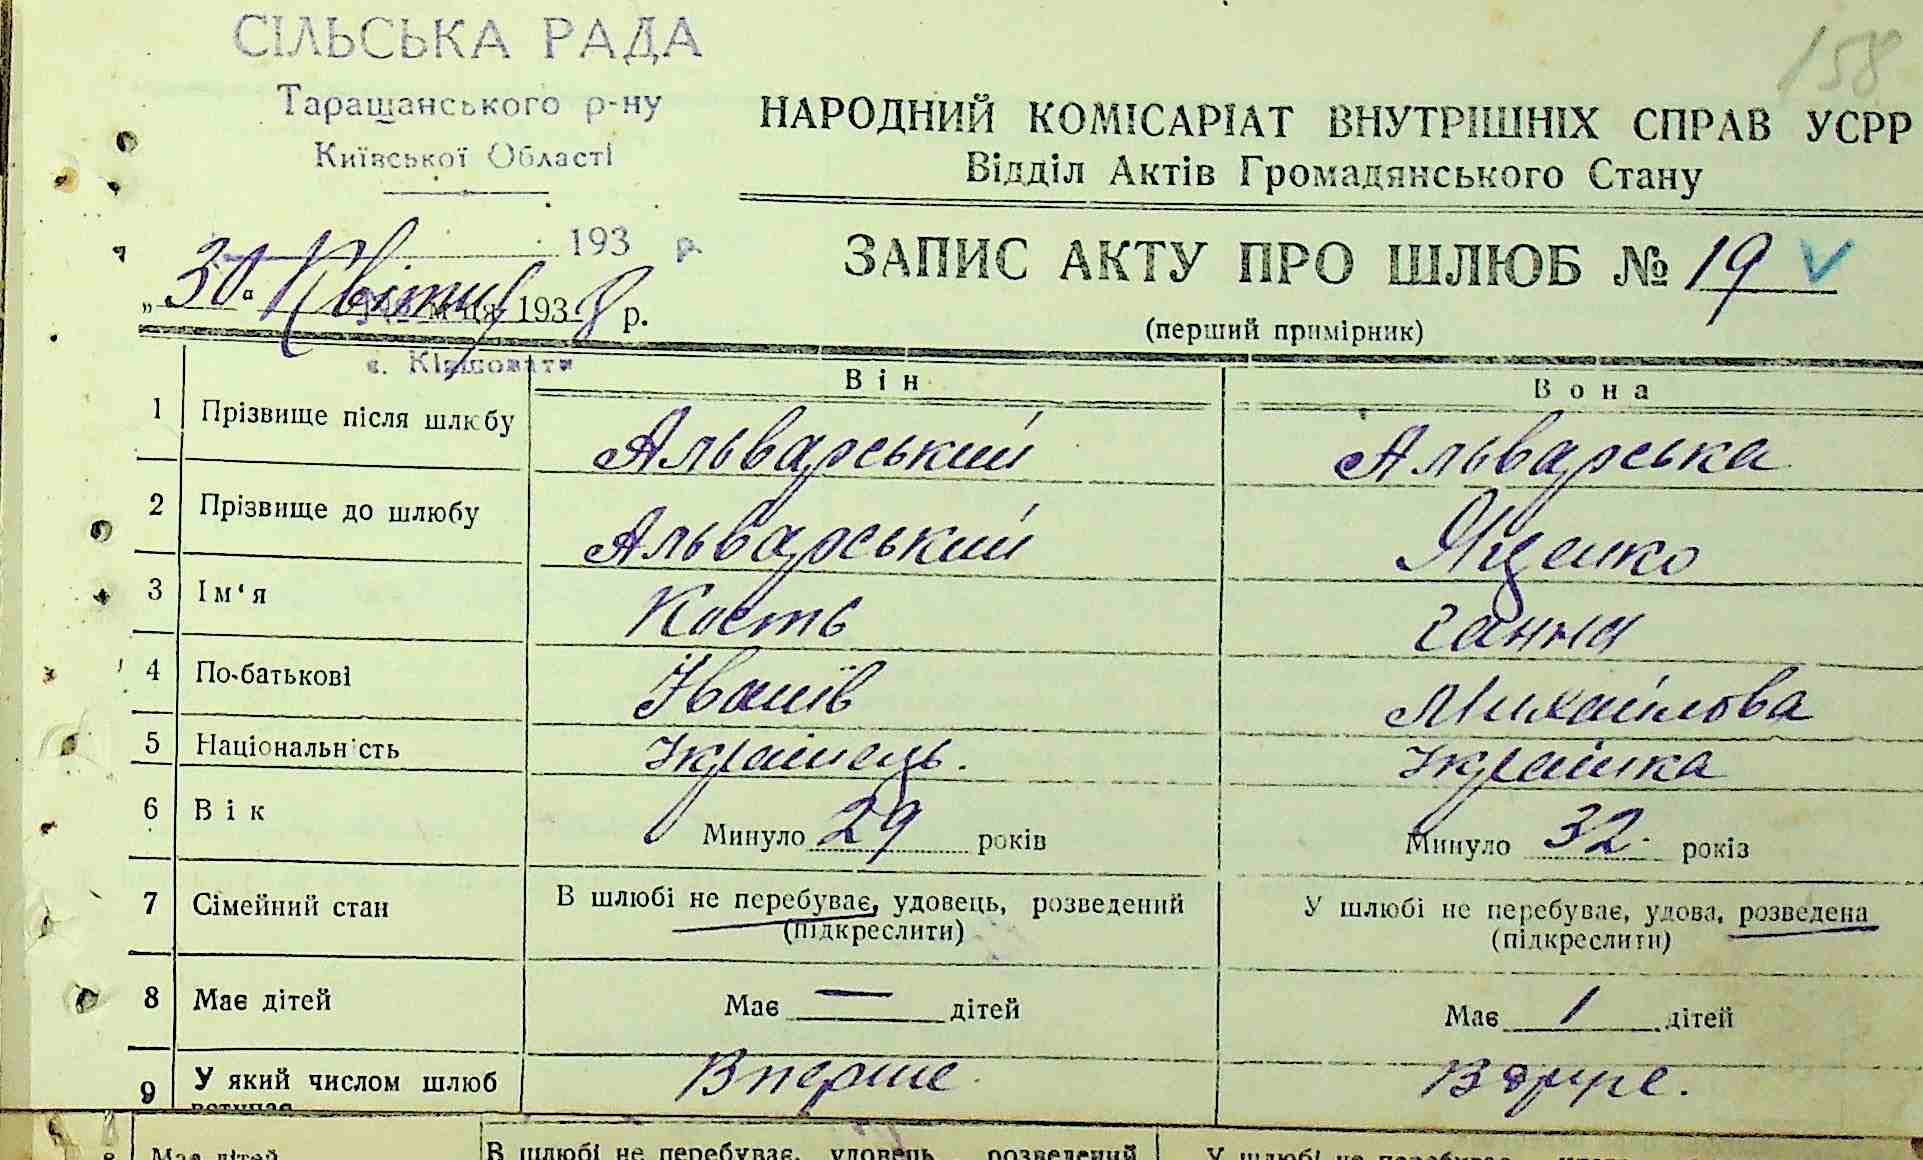 158
СІЛЬСЬКА РАДА
Таращанського р-ну
Київської Області
193 р.
НАРОДНИЙ КОМІСАРІАТ ВНУТРІШНІХ СПРАВ УСРР
Відділ Актів Громадянського Стану
ЗАПИС АКТУ ПРО ШЛЮБ № 19
(перший примірник)
„30" Квітня м-ця 1938 р.
Він Вона
1 Прізвище після шлюбу Альварський Альварська
2 Прізвище до шлюбу Альварський Яценко
3 Ім‘я Кость Ганна
4 По-батькові Іванів Михайлова
5 Національність Українець. Українка
6 Вік Минуло 29 років Минуло 32 років
7 Сімейний стан В шлюбі не перебуває, удовець, розведений У шлюбі не перебуває, удова, розведена
(підкреслити) (підкреслити)
8 Має дітей Має — дітей Має 1 дітей
9 У який числом шлюб Вперше Вдруге.
вступає
8 Має дітей В шлюбі не перебуває, удовець, розведений У шлюбі не перебуває,